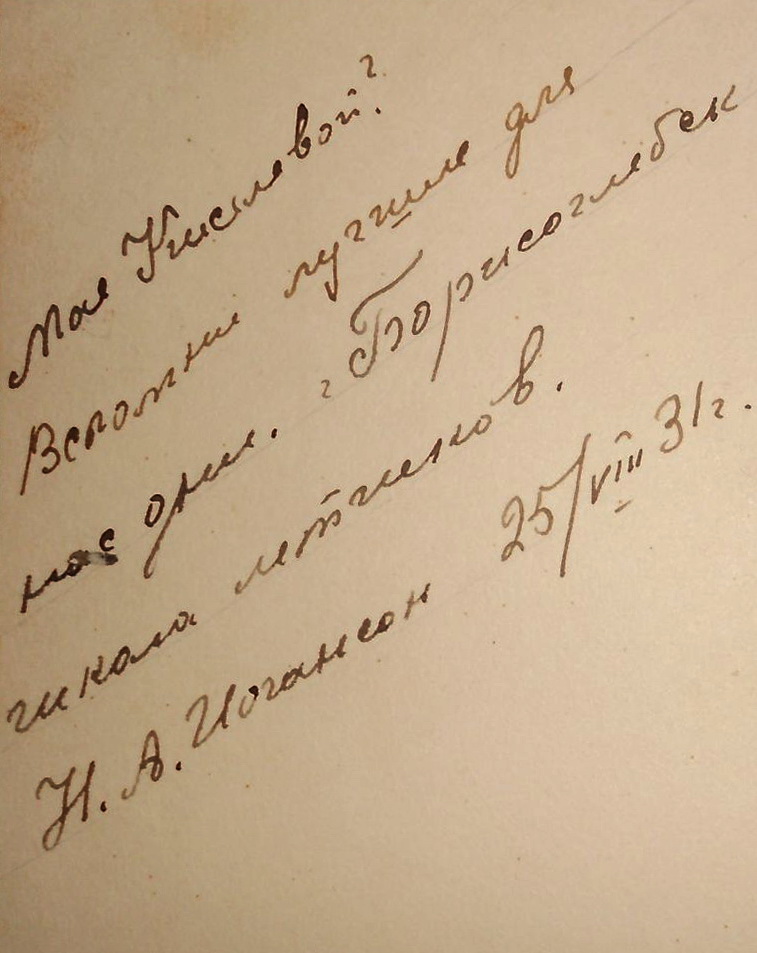 Мае Киселевой?
Вспомни лучшие для
нас дни. г Борисоглебск
школа летчиков.
Н. А. Иогансон 25/VIII 31г.